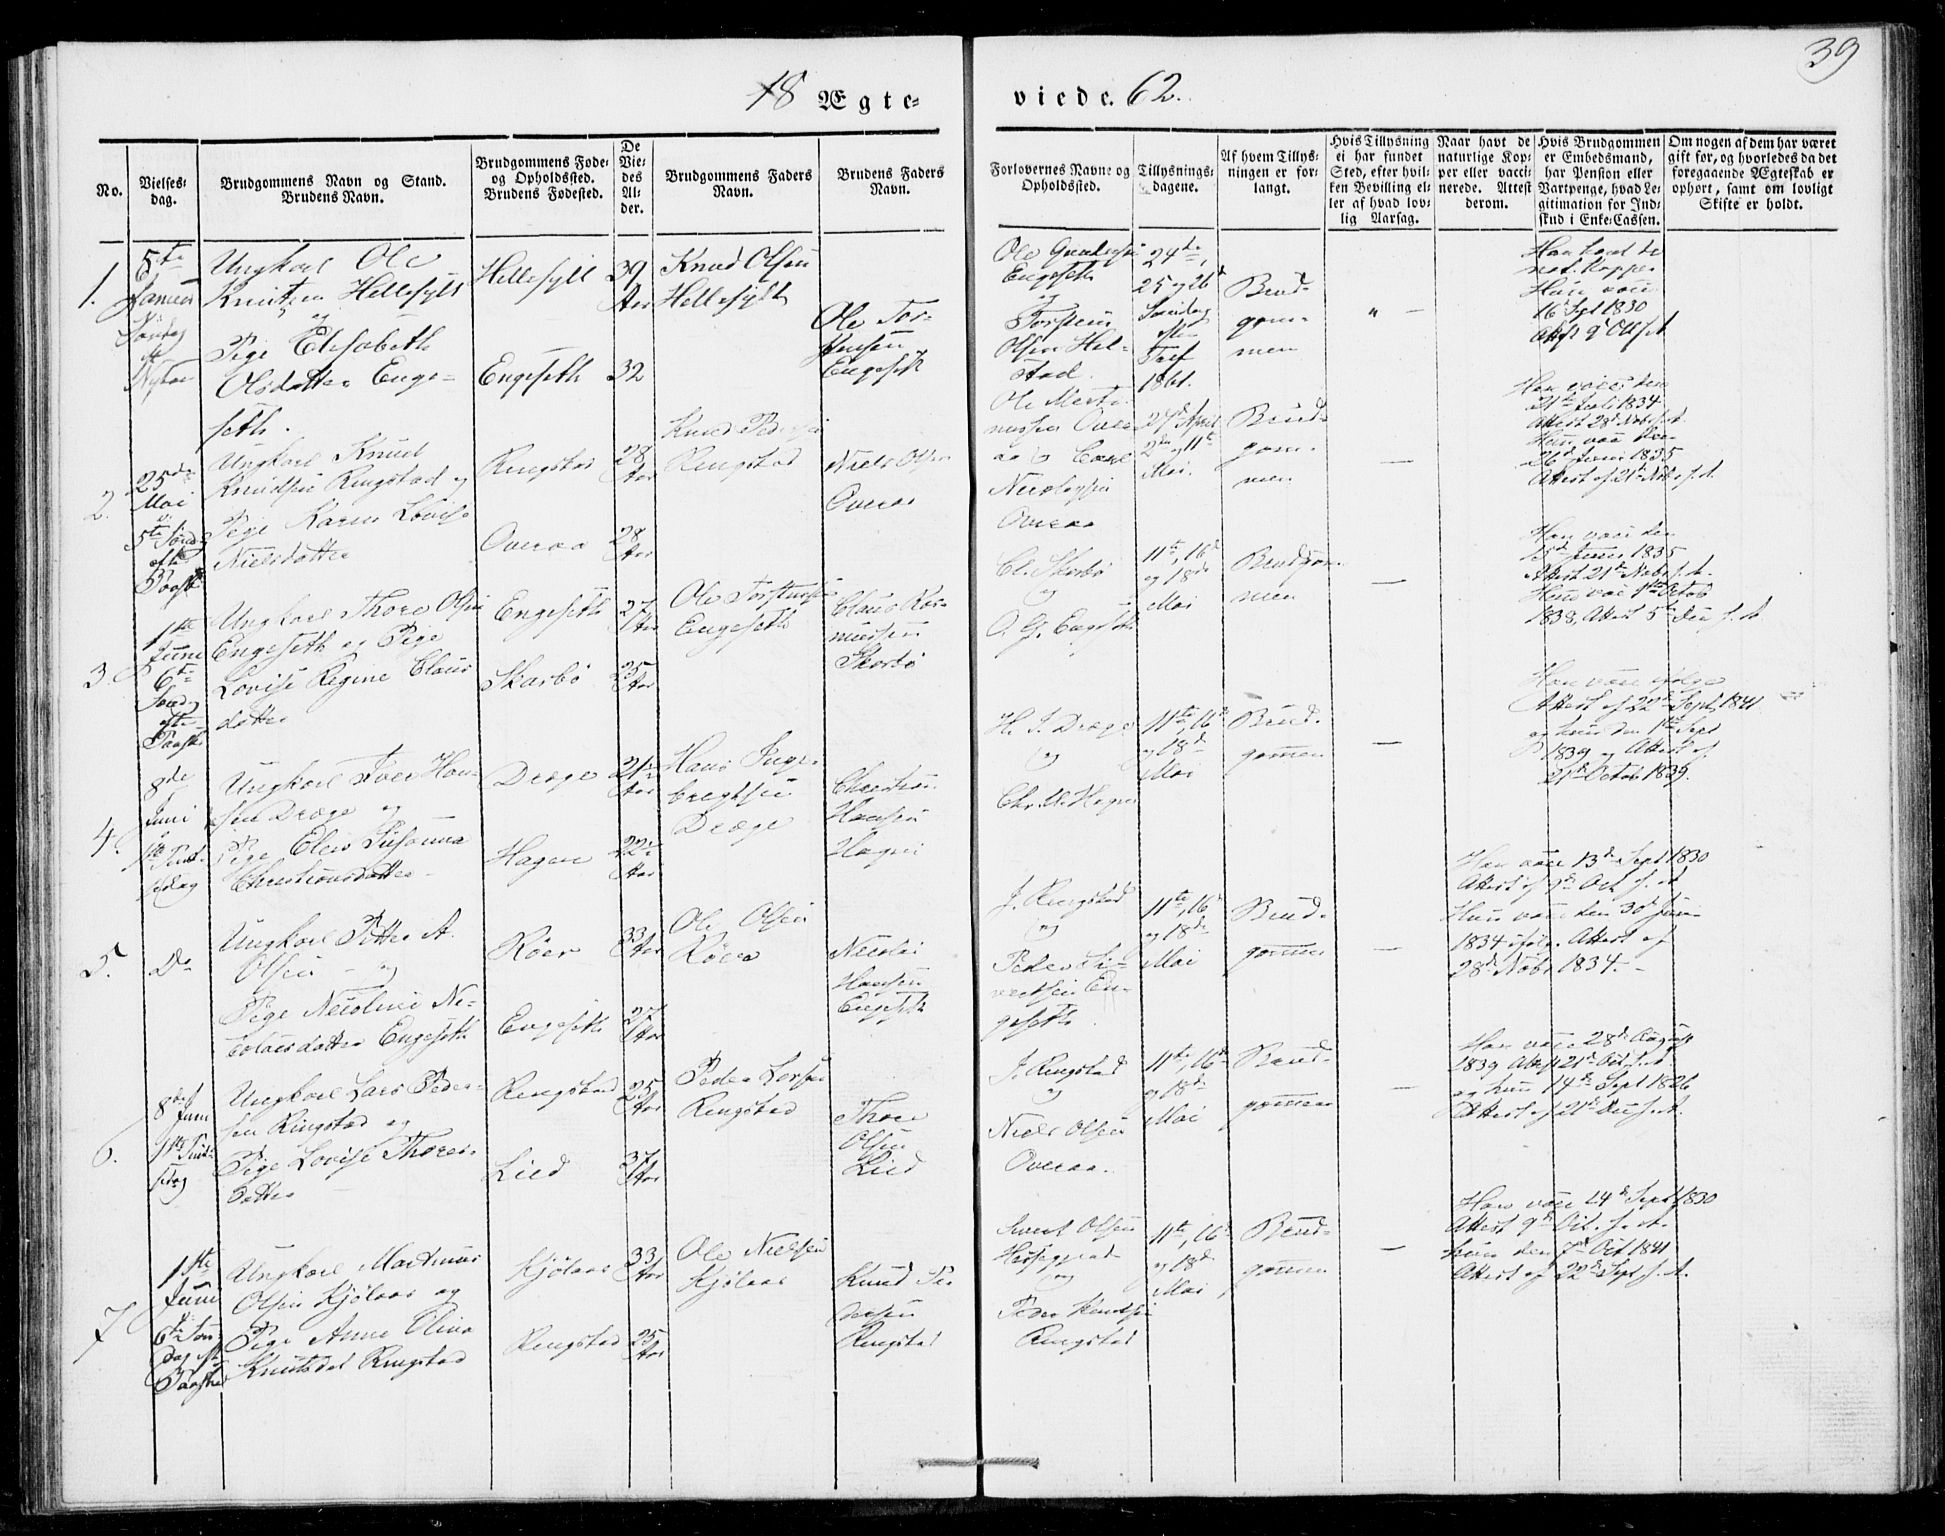 39
18 Ægte-
viede. 62.
No.
Vielses-
dag.
Brudgommens Navn og Stand.
Brudens Navn.
Brudgommens Føde-
og Opholdssted.
Brudens Fødested.
De
Vie-
des
Al-
der.
Brudgommens Faders
Navn.
Brudens Faders
Navn.
Forlovernes Navne og
Opholdssted.
Tillysnings-
dagene.
Af hvem Tillys-
ningen er for-
langt.
Hvis Tillysning
ei har fundet
Sted, efter hvil-
ken Bevilling el-
ler af hvad lov-
lig Aarsag.
Naar havt de
naturlige Kop-
per eller vacci-
nerede. Attest
derom.
Hvis Brudgommen
er Embedsmand,
har Pension eller
Vartpenge, hvad Le-
gitimation for Ind-
skud i Enke-Cassen.
Om nogen af dem har været
gift før, og hvorledes da det
foregaaende Ægteskab er
ophørt, samt om lovligt
Skifte er holdt.
1.
5te
Januar
Søndag
Nytaar
Ungkarl Ole
Knutsen Hellesylt
og
Pige Elisabeth
Olsdatter Enge-
seth.
Hellesylt
Engeseth
39
Aar
32
Knud Olsen
Hellesylt
Ole Tor-
stensen
Engeseth
Ole
Engeseth
og
Torstein
Olsen Hel-
stad.
24de,
25 og 26d
Søndag
1861.
Brud-
gom-
men
"
Han havt de
nat. Kopper
Hun vacc
16d Sept 1830
Attest 9d Oct s. A.
2.
25de
Mai
5te Sønd
eft
Paaske
Ungkarl Knud
Knudsen Ringstad og
Pige Karen Lovise
Nielsdatter
Ringstad
Overaa
28
Aar
28
Aar
Knud Pedersen
Ringstad
Niels Olsen
Overaa
Ole Marti-
nussen Over-
aa og
Overaa
27d April
2den og 11te
Mai.
Brud-
gom-
men
Han vacc den
21de Juli 1834
Attest 28d Nobr s. A.
Hun vacc den
26d Juni 1835
Attest af 21d Nobr s. A.
3.
1ste
Juni
6te
Sønd
efte
Paaske
Ungkarl Thore Olsen
Engeseth og Pige
Lovise Regine Claus
datter
Engeseth
Skarbø
27
Aar
25
Aar
Ole Torstensen
Engeseth
Claus Ras-
mussen
Skarbø
Cl. Skarbø
og
O. G. Engeseth
11te, 16d
og 18de
Mai
Brudgom-
men
Han vacc den
Juni 1835
Attest 21d Nobr s. A.
Hun vac 1ste Octob
1838, Attest 5te Dec s. A.
4.
8de
Juni
1ste Pint-
sedag
Ungkarl Iver Han-
sen Drage og
Pige Elen Susanna
Christiansdatter
Drage
Hagen
21
Aar
22
Aar
Hans Inge-
bregtsen
Drage
Christian
Hansen
Hagen
H. I. Drage
og
Chr. H. Hagen
11te, 16d
og 18de
Mai
Brud-
gommen
Han vacc ifølge
Attest af 22de Sept 1841
og hun den 1ste Sept
1839 og Attest af
21d Octob 1839.
5.
Do
Ungkarl Petter A.
Olsen og
Pige Nicoline Ni-
colaisdatter Engeseth
Røer
Engeseth
33
Aar
27
Aar
Ole Olsen
Røer
Nicolai
Hansen
Engeseth
J. Ringstad
og
Peder Si-
vertsen En-
geseth.
11te, 16d
og 18de
Mai
Brud-
gommen
Han vacc 13d Sept 1830
Attest af 9d Oct s. A.
Hun vacc den 30d Juni
1834 ifølg. Attest af
28d Nobr 1834.
6.
8de
Juni
1ste Pint-
sedag
Ungkarl Lars Peder-
sen Ringstad og
Pige Lovise Thores-
datter
Ringstad
Lied
25
Aar
37
Aar
Peder Larsen
Ringstad
Thore
Olsen
Lied
J. Ringstad
og
Niels Olsen
Overaa.
11te, 16d
og 18de
Mai
Brud-
gommen
Han vacc 28d August
1839 Attest 21d Oct s. A.
og hun 14d Sept 1826
Attest af 21d Dec s. A.
7
1ste
Juni
6te Søn
dag eft
Paaske
Ungkarl Martinus
Olsen Kjølaas og
Pige Anne Oliva
Knutsdat Ringstad
Kjølaas
Ringstad
33
Aar
25
Aar
Ole Nielsen
Kjølaas
Knud Pe
dersen
Ringstad
Sivert Olsen
og
Peder Knudsen
Ringstad
11te, 16d
og 18de
Mai
Brud-
gommen
Han vacc 14d Sept 1830
Attest 9d Oct. s. A.
hun den 7d Oct 1841
Attest af 22d Sept s. A.